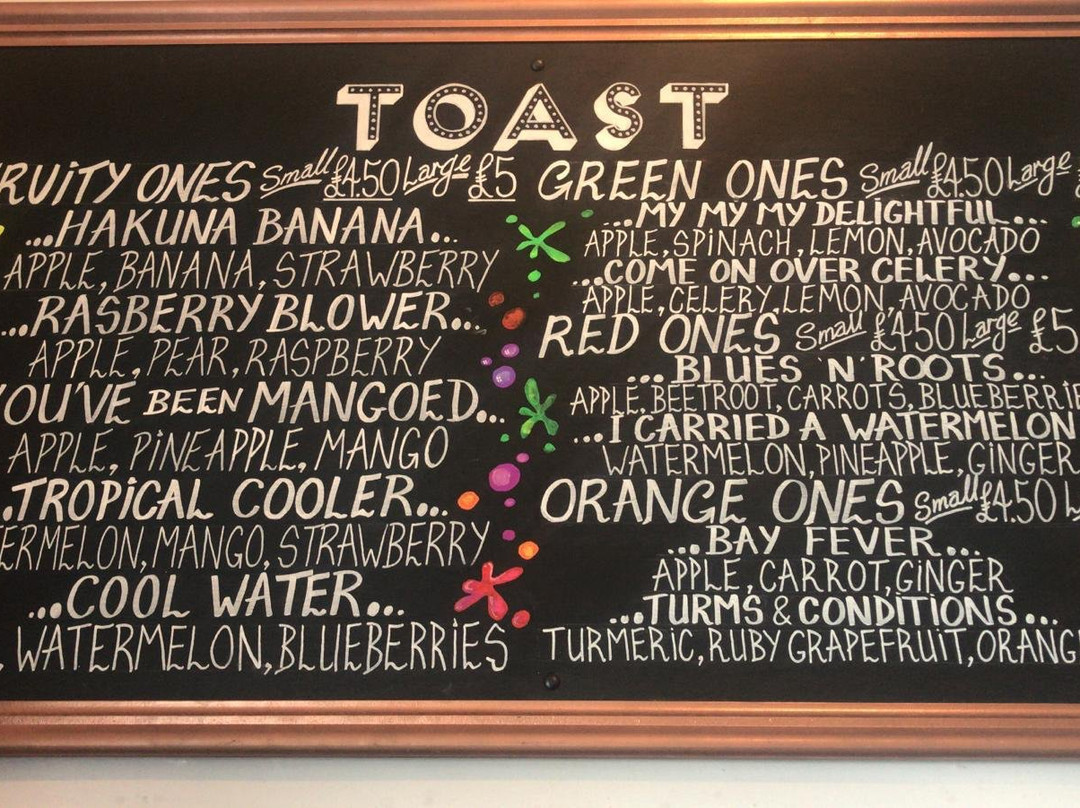 TOAST
RUITY ONES Small £4.50 Large £5
...HAKUNA BANANA...
APPLE, BANANA, STRAWBERRY
...RASBERRY BLOWER...
APPLE, PEAR, RASPBERRY
OU'VE BEEN MANGOED...
APPLE, PINEAPPLE, MANGO
.TROPICAL COOLER...
ERMELON, MANGO, STRAWBERRY
...COOL WATER...
, WATERMELON, BLUEBERRIES
GREEN ONES Small £4.50 Large £
...MY MY MY DELIGHTFUL...
APPLE, SPINACH, LEMON, AVOCADO
...COME ON OVER CELERY...
APPLE, CELERY, LEMON, AVOCADO
RED ONES Small £4.50 Large £5
...BLUES 'N' ROOTS...
APPLE, BEETROOT, CARROTS, BLUEBERRIE
...I CARRIED A WATERMELON
WATERMELON, PINEAPPLE, GINGER
ORANGE ONES Small £4.50 L
...BAY FEVER...
APPLE, CARROT, GINGER
...TURMS & CONDITIONS...
TURMERIC, RUBY GRAPEFRUIT, ORANG